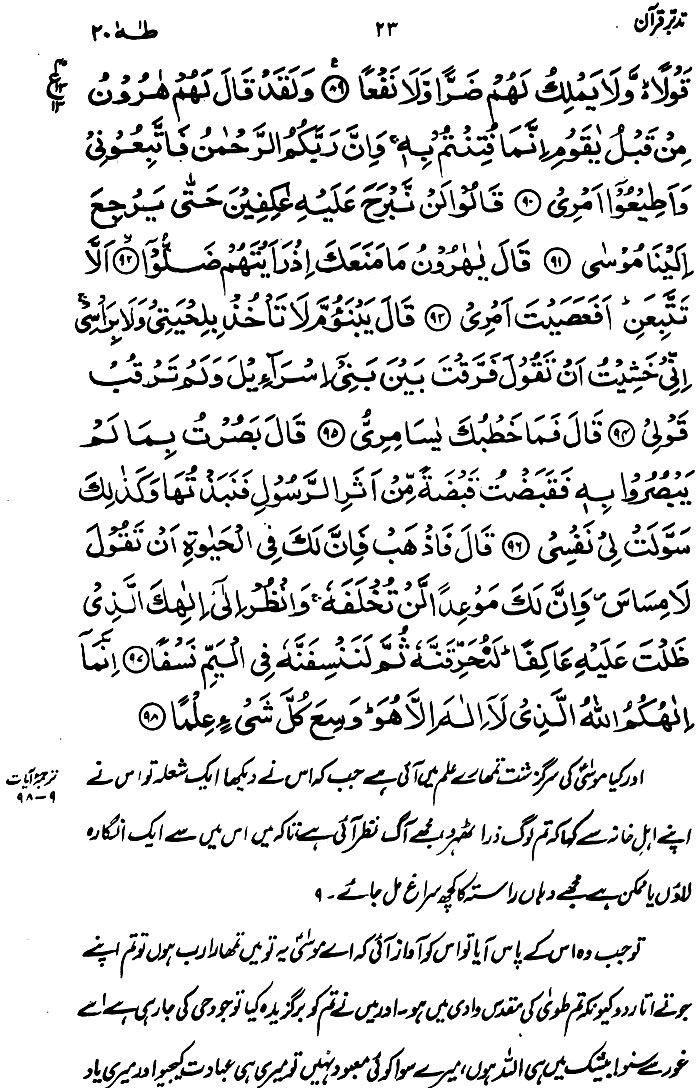 تدبر قرآن ۲۳ طٰهٰ ۲۰
قَوْلًا ۙ وَّلَا يَمْلِكُ لَهُمْ ضَرًّا وَّلَا نَفْعًا ﴿۸۹﴾ وَلَقَدْ قَالَ لَهُمْ هٰرُوْنُ
مِنْ قَبْلُ يٰقَوْمِ اِنَّمَا فُتِنْتُمْ بِهٖ ۚ وَاِنَّ رَبَّكُمُ الرَّحْمٰنُ فَاتَّبِعُوْنِيْ
وَاَطِيْعُوْٓا اَمْرِيْ ﴿۹۰﴾ قَالُوْا لَنْ نَّبْرَحَ عَلَيْهِ عٰكِفِيْنَ حَتّٰى يَرْجِعَ
اِلَيْنَا مُوْسٰى ﴿۹۱﴾ قَالَ يٰهٰرُوْنُ مَا مَنَعَكَ اِذْ رَاَيْتَهُمْ ضَلُّوْٓا ﴿۹۲﴾ اَلَّا
تَتَّبِعَنِ ؕ اَفَعَصَيْتَ اَمْرِيْ ﴿۹۳﴾ قَالَ يَبْنَؤُمَّ لَا تَاْخُذْ بِلِحْيَتِيْ وَلَا بِرَاْسِيْ ۚ
اِنِّيْ خَشِيْتُ اَنْ تَقُوْلَ فَرَّقْتَ بَيْنَ بَنِيْٓ اِسْرَآءِيْلَ وَلَمْ تَرْقُبْ
قَوْلِيْ ﴿۹۴﴾ قَالَ فَمَا خَطْبُكَ يٰسَامِرِيُّ ﴿۹۵﴾ قَالَ بَصُرْتُ بِمَا لَمْ
يَبْصُرُوْا بِهٖ فَقَبَضْتُ قَبْضَةً مِّنْ اَثَرِ الرَّسُوْلِ فَنَبَذْتُهَا وَكَذٰلِكَ
سَوَّلَتْ لِيْ نَفْسِيْ ﴿۹۶﴾ قَالَ فَاذْهَبْ فَاِنَّ لَكَ فِي الْحَيٰوةِ اَنْ تَقُوْلَ
لَا مِسَاسَ ۪ وَاِنَّ لَكَ مَوْعِدًا لَّنْ تُخْلَفَهٗ ۚ وَانْظُرْ اِلٰٓى اِلٰهِكَ الَّذِيْ
ظَلْتَ عَلَيْهِ عَاكِفًا ؕ لَنُحَرِّقَنَّهٗ ثُمَّ لَنَنْسِفَنَّهٗ فِي الْيَمِّ نَسْفًا ﴿۹۷﴾ اِنَّمَآ
اِلٰهُكُمُ اللّٰهُ الَّذِيْ لَآ اِلٰهَ اِلَّا هُوَ ؕ وَسِعَ كُلَّ شَيْءٍ عِلْمًا ﴿۹۸﴾
ترجمۂ آیات
۹-۹۸
اور کیا موسیٰؑ کی سرگزشت تمھارے علم میں آئی ہے جب کہ اس نے دیکھا ایک شعلہ تو اس نے
اپنے اہل خانہ سے کہا کہ تم لوگ ذرا ٹھہرو، مجھے آگ نظر آئی ہے تاکہ میں اس میں سے ایک انگارہ
لاؤں یا ممکن ہے مجھے وہاں راستہ کا کچھ سراغ مل جائے۔ ۹
تو جب وہ اس کے پاس آیا تو اس کو آواز آئی کہ اے موسیٰؑ یہ تو میں تمھارا رب ہوں تو تم اپنے
جوتے اتار دو کیونکہ تم طویٰ کی مقدس وادی میں ہو۔ اور میں نے تم کو برگزیدہ کیا تو جو وحی کی جا رہی ہے اسے
غور سے سنو! بیشک میں ہی اللہ ہوں، میرے سوا کوئی معبود نہیں تو میری ہی عبادت کیجیو اور میری یاد